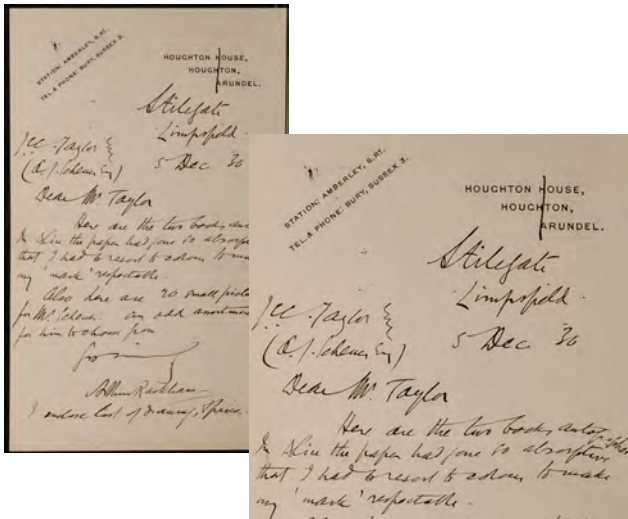 STATION: AMBERLEY, S.RY.
TEL. & PHONE: BURY, SUSSEX 3.
HOUGHTON HOUSE,
HOUGHTON,
ARUNDEL.
Stilegate
Limpsfield
5 Dec 30
Taylor
Dear Mr. Taylor
Here are the two books
In Alice the paper had gone so absorptive
that I had to resort to colour to
my 'mark' respectable
Also here are 20 small
for Mr. an odd
for him to choose from
Arthur Rackham
I enclose list of drawings & prices.
STATION: AMBERLEY, S.RY.
TEL. & PHONE: BURY, SUSSEX 3.
HOUGHTON HOUSE,
HOUGHTON,
ARUNDEL.
Stilegate
Limpsfield.
5 Dec 30
Taylor
Dear Mr. Taylor
Here are the two books
In Alice the paper had gone so absorptive
that I had to resort to colour to make
my 'mark' respectable.